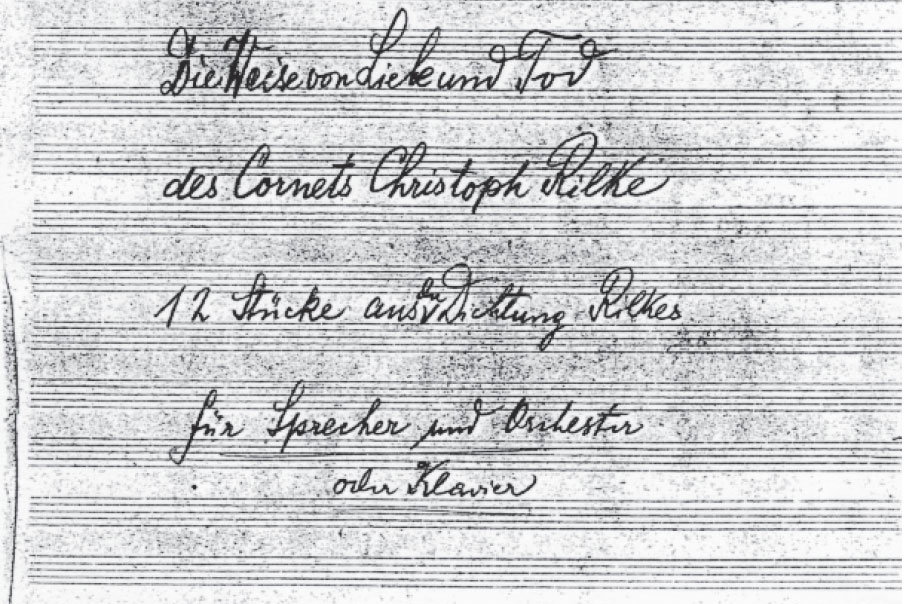 Die Weise von Liebe und Tod
des Cornets Christoph Rilke
12 Stücke aus der Dichtung Rilkes
für Sprecher und Orchester
oder Klavier